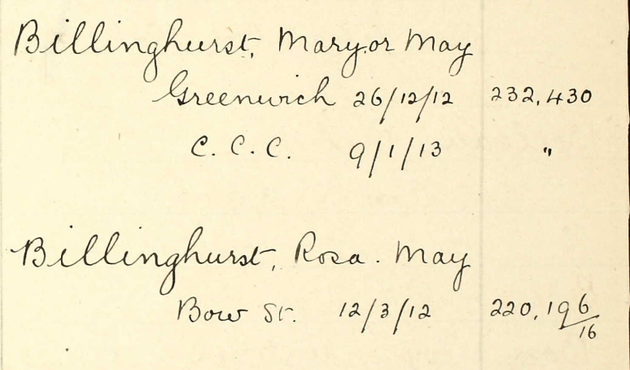 Billinghurst, Mary or May
Greenwich 26/12/12 232,430
C. C. C. 9/1/13 "
Billinghurst, Rosa. May
Bow St. 12/3/12 220,196/16